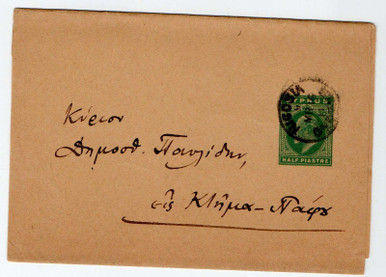 NICOSIA
CYPRUS
HALF PIASTRE
Κύριον
Δημοσθ. Παυλίδην,
εἰς Κτῆμα-Πάφου